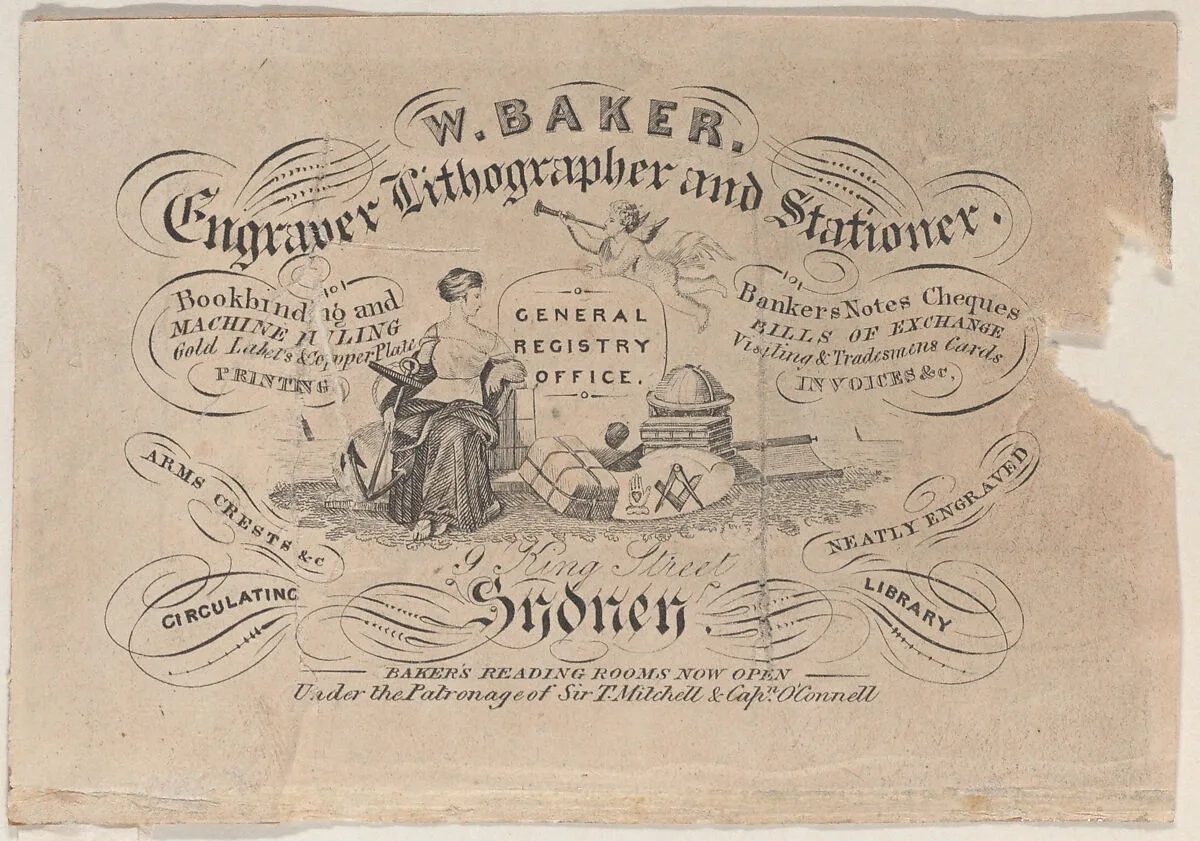 W. BAKER.
Engraver Lithographer and Stationer.
Bookbinding and
MACHINE RULING
Gold Labels & Copper Plate
PRINTING
GENERAL
REGISTRY
OFFICE.
Bankers Notes Cheques
BILLS OF EXCHANGE
Visiting & Tradesmens Cards
INVOICES &c,
ARMS CRESTS &c
NEATLY ENGRAVED
9 King Street
CIRCULATING
Sydney.
LIBRARY
BAKER'S READING ROOMS NOW OPEN
Under the Patronage of Sir T. Mitchell & Capn. O'Connell